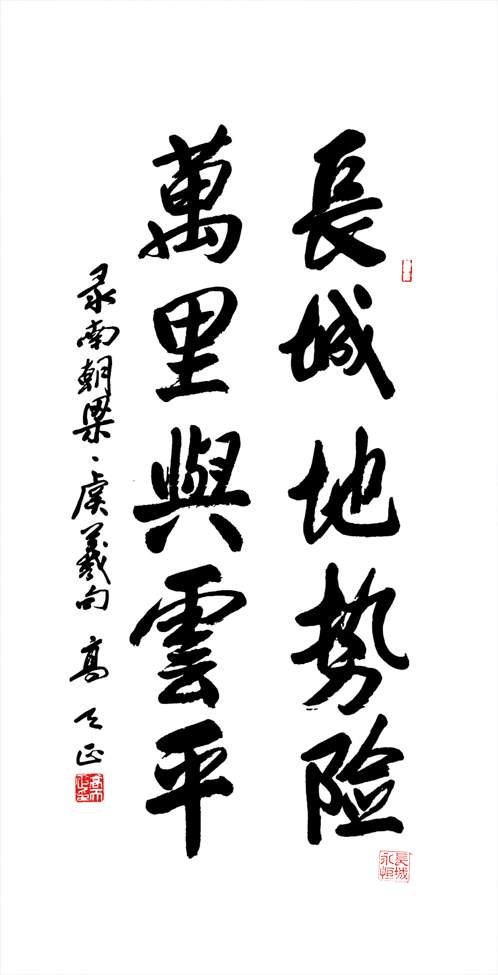 長城地势险
萬里與雲平
录南朝梁、虞羲句 高天正
長城永恒